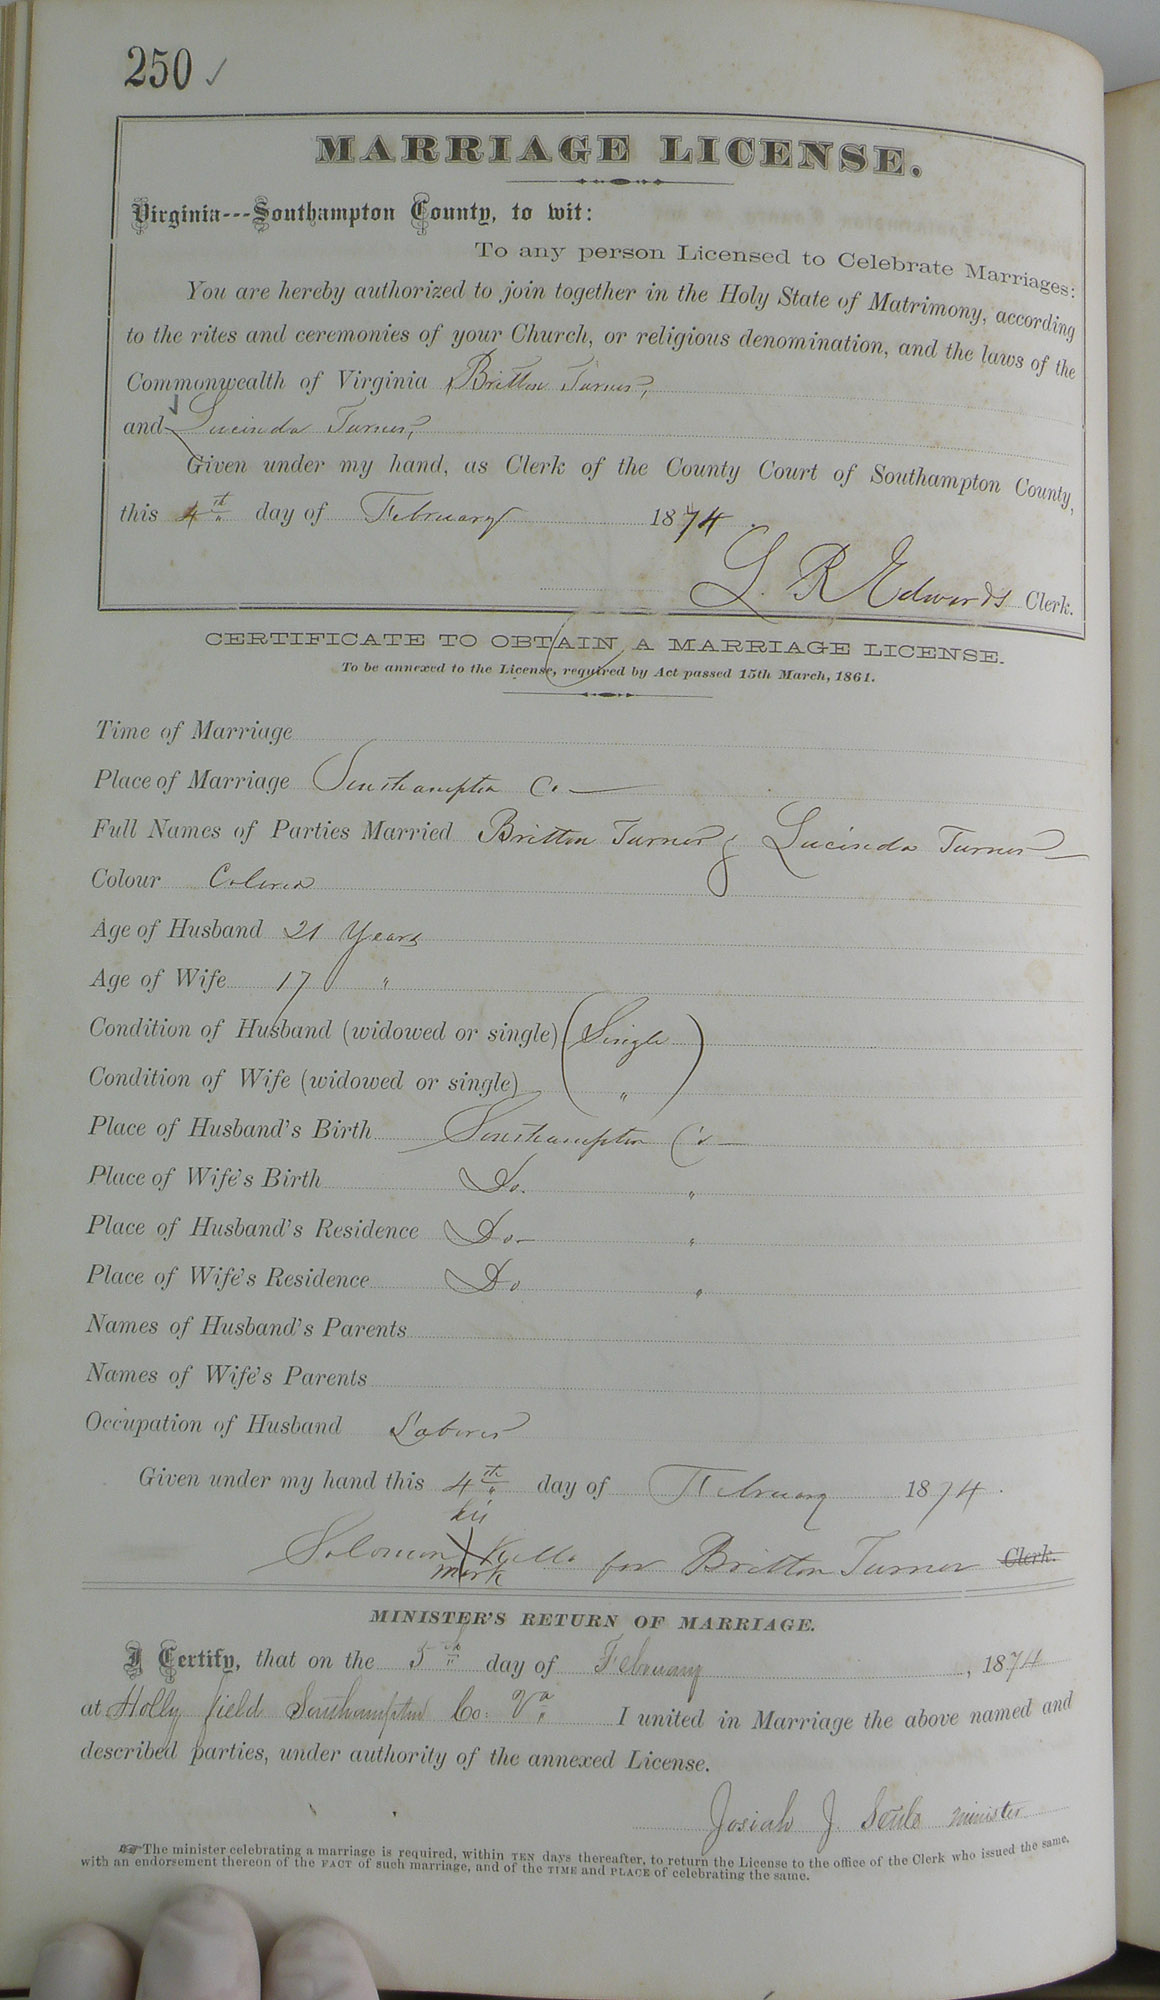 250 ✓
MARRIAGE LICENSE.
Virginia---Southampton County, to wit:
To any person Licensed to Celebrate Marriages:
You are hereby authorized to join together in the Holy State of Matrimony, according
to the rites and ceremonies of your Church, or religious denomination, and the laws of the
Commonwealth of Virginia Britton Turner,
and Lucinda Turner,
Given under my hand, as Clerk of the County Court of Southampton County,
this 4th day of February 1874.
L. R. Edwards Clerk.
CERTIFICATE TO OBTAIN A MARRIAGE LICENSE.
To be annexed to the License, required by Act passed 15th March, 1861.
Time of Marriage
Place of Marriage Southampton Co. —
Full Names of Parties Married Britton Turner & Lucinda Turner —
Colour Colored
Age of Husband 21 Years
Age of Wife 17 "
Condition of Husband (widowed or single) (Single)
Condition of Wife (widowed or single) "
Place of Husband's Birth Southampton Co —
Place of Wife's Birth Do. "
Place of Husband's Residence Do- "
Place of Wife's Residence Do "
Names of Husband's Parents
Names of Wife's Parents
Occupation of Husband Laborer
Given under my hand this 4th day of February 1874.
his
Solomon X for Britton Turner Clerk.
mark
MINISTER'S RETURN OF MARRIAGE.
I Certify, that on the 5th day of February, 1874
at Holly field Southampton Co. Va I united in Marriage the above named and
described parties, under authority of the annexed License.
Josiah J minister
☞The minister celebrating a marriage is required, within TEN days thereafter, to return the License to the office of the Clerk who issued the same,
with an endorsement thereon of the FACT of such marriage, and of the TIME and PLACE of celebrating the same.